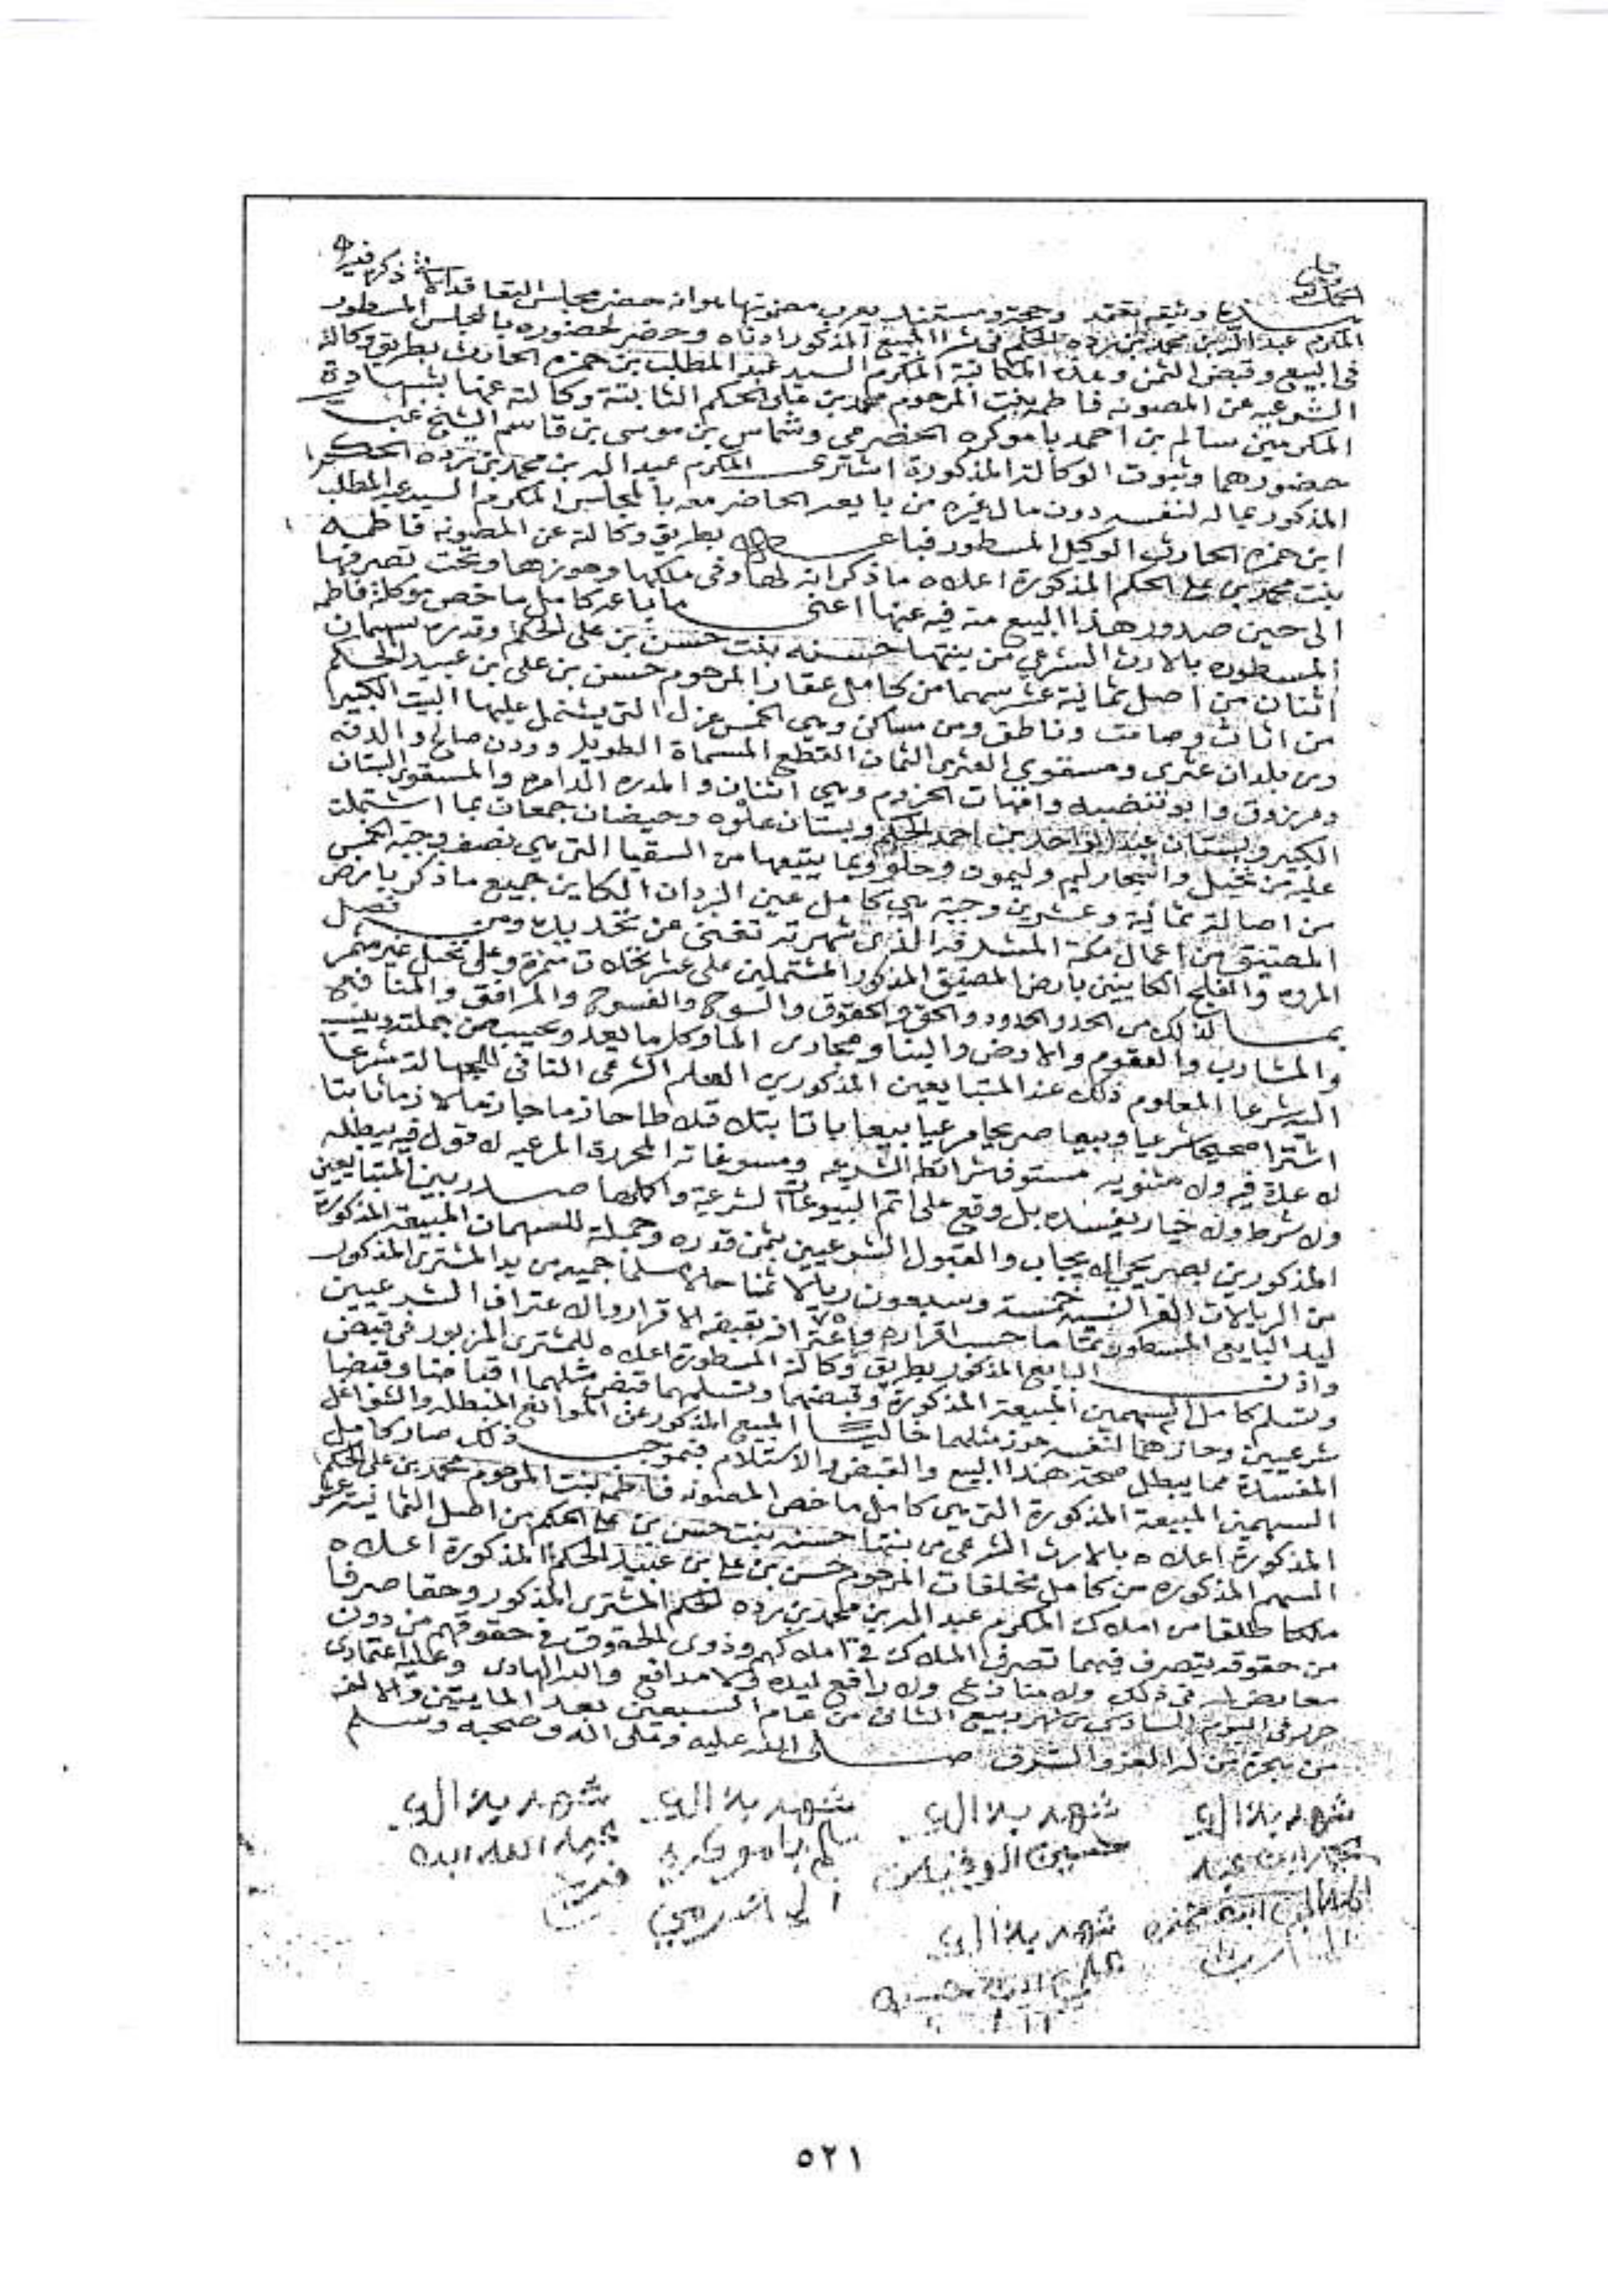 الحمد لله
وثيقة تعتمد وحجة ومستند يعرب مضمونها هو انه حضر مجلس التعاقد الكائن ذكره فيه
المكرم عبد الله بن محمد بن برده الحكم في شرا المبيع المذكور ادناه وحضر لحضوره بالمجلس المسطور
في البيع وقبض الثمن وعقد المكاتبة المكرم السيد عبد المطلب بن حمزه الحارث بطريق وكالته
الشرعيه عن المصونه فاطمه بنت المرحوم محمد بن علي الحكم الثابتة وكالته عنها بشهادة
المكرمين سالم بن احمد باموكره الحضرمي وشماس بن موسى بن قاسم الشيخ
حضورهما وثبوت الوكالة المذكورة اشترى المكرم عبد الله بن محمد بن برده الحكم
المذكور بماله لنفسه دون مال غيره من بايعه الحاضر معه بالمجلس المكرم السيد عبد المطلب
ابن حمزه الحارث الوكيل المسطور فباعه بطريق وكالته عن المصونه فاطمه
بنت محمد بن علي الحكم المذكورة اعلاه ما ذكر انه لها وفي ملكها وحوزها وتحت تصرفها
الى حين صدور هذا البيع منه فيه عنها اعني ما باعه كامل ما خص موكلته فاطمه
المسطوره بالارث الشرعي من بنتها حسنه بنت حسن بن علي الحكم وقدره سهمان
اثنان من اصل ثمانية عشر سهما من كامل عقار المرحوم حسن بن علي بن عبيد الحكم
من اثاث وصامت وناطق ومن مساكن وهي الخمس عزل التي يشتمل عليها البيت الكبير
ومن بلدان عثري ومسقوي العثري الثمان القطع المسماة الطويله وودن صالح والدقه
ومرزوق وابو تنضبه وامهات الحزوم وهي اثنتان والمدره الدامره والمسقوي البستان
الكبير وبستان عبد الواحد بن احمد الحكم وبستان علوه وحيضان جمعان بما اشتملت
عليه من نخيل واشجار ليم وليمون وحلو وبما يتبعها من السقيا التي هي نصف وجبة الخمس
من اصالة ثمانية وعشرين وجبة هي كامل عين البردان الكاين جميع ما ذكر بارض
المضيق من اعمال مكة المشرفه الذي شهرته تغني عن تحديده ومن فصل
المروه والمفلح الكاينين بارض المضيق المذكور المشتملين على عشر نخلات مثمرة وعلى نخيل غير مثمر
بما لذلك من الحد والحدود والحق والحقوق والسوح والفسوح والمرافق والمنافع
والمشارب والعقوم والارض والبنا ومجارى الما وكل ما يعد ويحسب من جملته وينسب
اليه شرعا المعلوم ذلك عند المتبايعين المذكورين العلم الشرعي النافي للجهالة شرعا
اشترا صحيحا شرعيا وبيعا صريحا مرعيا بيعا باتا بتلا قلاطا حازما جازما لازما ثابتا
لا علة فيه ولا مثنويه مستوف شرائطه الشرعيه ومسوغاته المحررة المرعيه لا قول فيه يبطله
ولا شرط ولا خيار يفسده بل وقع على اتم البيوعات الشرعية واكملها صدر بين المتبايعين
المذكورين بصريح الايجاب والقبول الشرعيين بثمن قدره وجملته للسهمان المبيعة المذكورة
من الريالات الفرانسه خمسة وسبعون ريالا ثمنا حالا سلما جميعه من يد المشتري المذكور
ليد البايع المسطور تماما حسب اقراره واعترافه بقبضه الاقرار والاعتراف الشرعيين ٧٥
واذن البايع المذكور بطريق وكالته المسطورة اعلاه للمشتري المزبور في قبض
وتسلم كامل السهمين المبيعة المذكورة وقبضهما وتسلمهما قبض مثلهما اقباضا وقبضا
شرعيين وحازهما لنفسه حوز مثلهما خاليا المبيع المذكور عن الموانع المبطله والشواغل
المفسدة مما يبطل صحة هذا البيع والقبض والاستلام فبموجب ذلك صار كامل
السهمين المبيعة المذكورة التي هي كامل ما خص المصونه فاطمه بنت المرحوم محمد بن علي الحكم
المذكورة اعلاه بالارث الشرعي من بنتها حسنه بنت حسن بن علي الحكم من اصل الثمانية عشر
السهم المذكوره من كامل مخلفات المرحوم حسن بن علي بن عبيد الحكم المذكورة اعلاه
ملكا طلقا من املاك المكرم عبد الله بن محمد بن برده الحكم المشتري المذكور وحقا صرفا
من حقوقه يتصرف فيهما تصرف الملاك في املاكهم وذوي الحقوق في حقوقهم من دون
معارض له في ذلك ولا منازع ولا رافع ليده ولا مدافع والله الهادي وعليه اعتمادي
حرر في اليوم السادس من شهر ربيع الثاني من عام السبعين بعد المايتين والالف
من هجرة من له العز والشرف صلى الله عليه وعلى اله وصحبه وسلم
شهد بذالك
عبد
المطلب ابن حمزه
الحارث
شهد بذالك
حسين
شهد بذالك
سالم باموكره
الحضرمي
شهد بذالك
عبد الله ابن
شهد بذالك
٥٢١